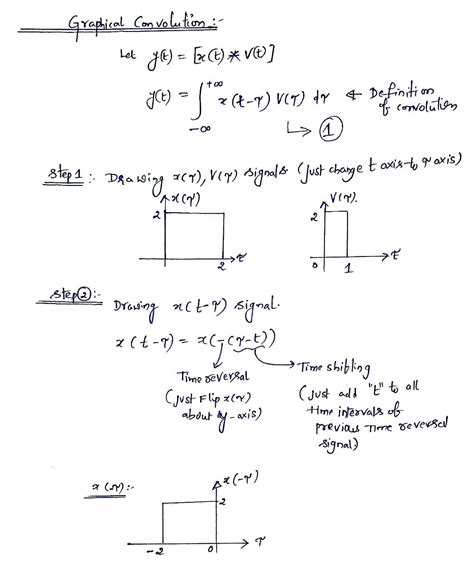 Graphical Convolution:-
Let y(t) = [x(t) * v(t)]
y(t) = ∫ x(t-τ) v(τ) dτ ← Definition of convolution
+∞
-∞
↳ ①
Step 1 :- Drawing x(τ), v(τ) signals (just change t axis to τ axis)
x(τ)
2
2
τ
v(τ).
2
0
1
τ
Step②:- Drawing x(t-τ) signal.
x(t-τ) = x(-(τ-t))
Time reversal
(just Flip x(τ)
about y-axis)
Time shibting
(just add "t" to all
time intervals of
previous time reversed
signal)
x(-τ):-
x(-τ)
2
-2
0
τ